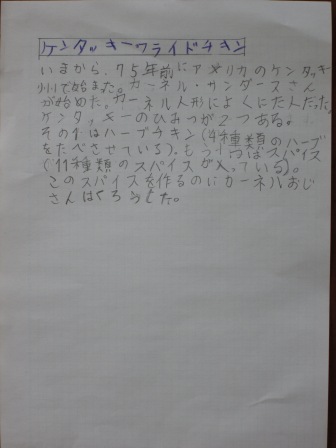 ケンタッキーフライドチキン
いまから、75年前にアメリカのケンタッキー
州で始また。カーネル・サンダースさん
が始めた。カーネル人形によくにた人だった。
ケンタッキーのひみつが2つある。
その1はハーブチキン(4種類のハーブ
をたべさせている)。もう1つはスパイス
(11種類のスパイスが入っている)。
このスパイスを作るのにカーネルおじ
さんはくろうした。